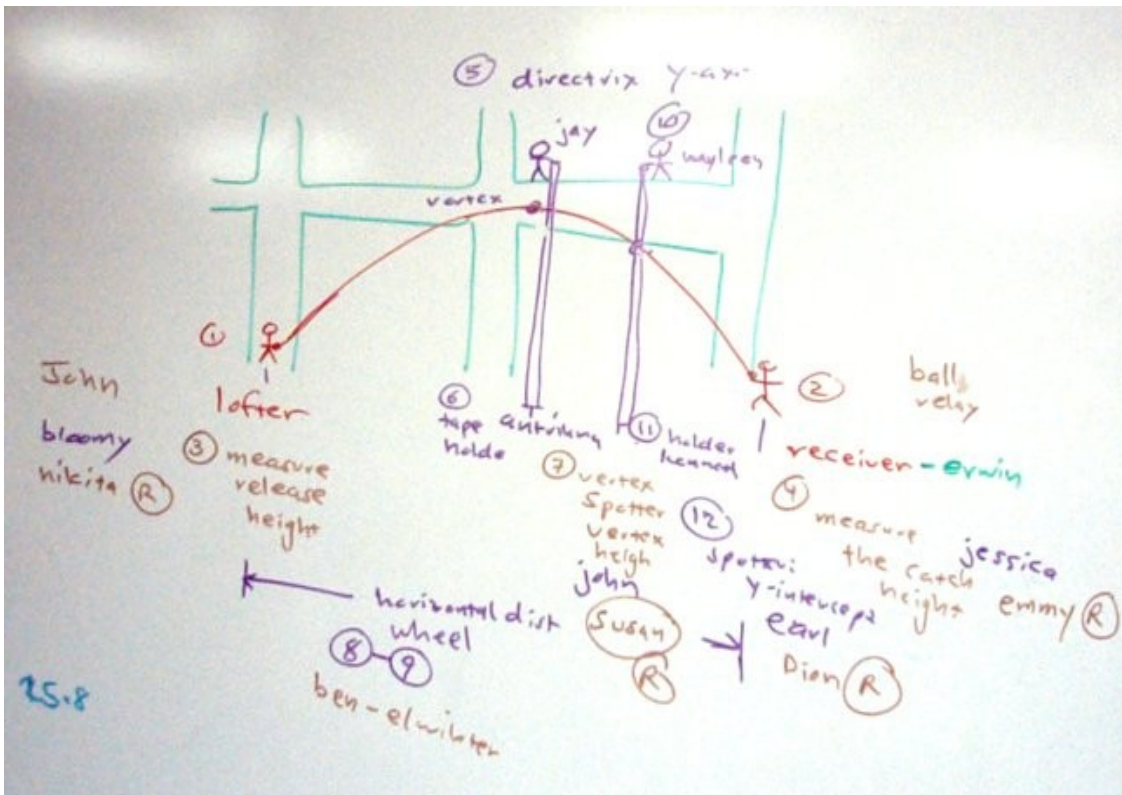 5 directrix y-ax
jay
10
vertex
1
John
lofter
bloomy
nikita R
3 measure
release
height
6
tape
holde
11 holder
2
ball
relay
receiver - erwin
7 vertex
spotter
vertex
heigh
john
Susan
R
12
spotter:
y-intercept
earl
Dion R
4
measure
the catch
height
jessica
emmy R
horizontal dist
wheel
8 - 9
25.8